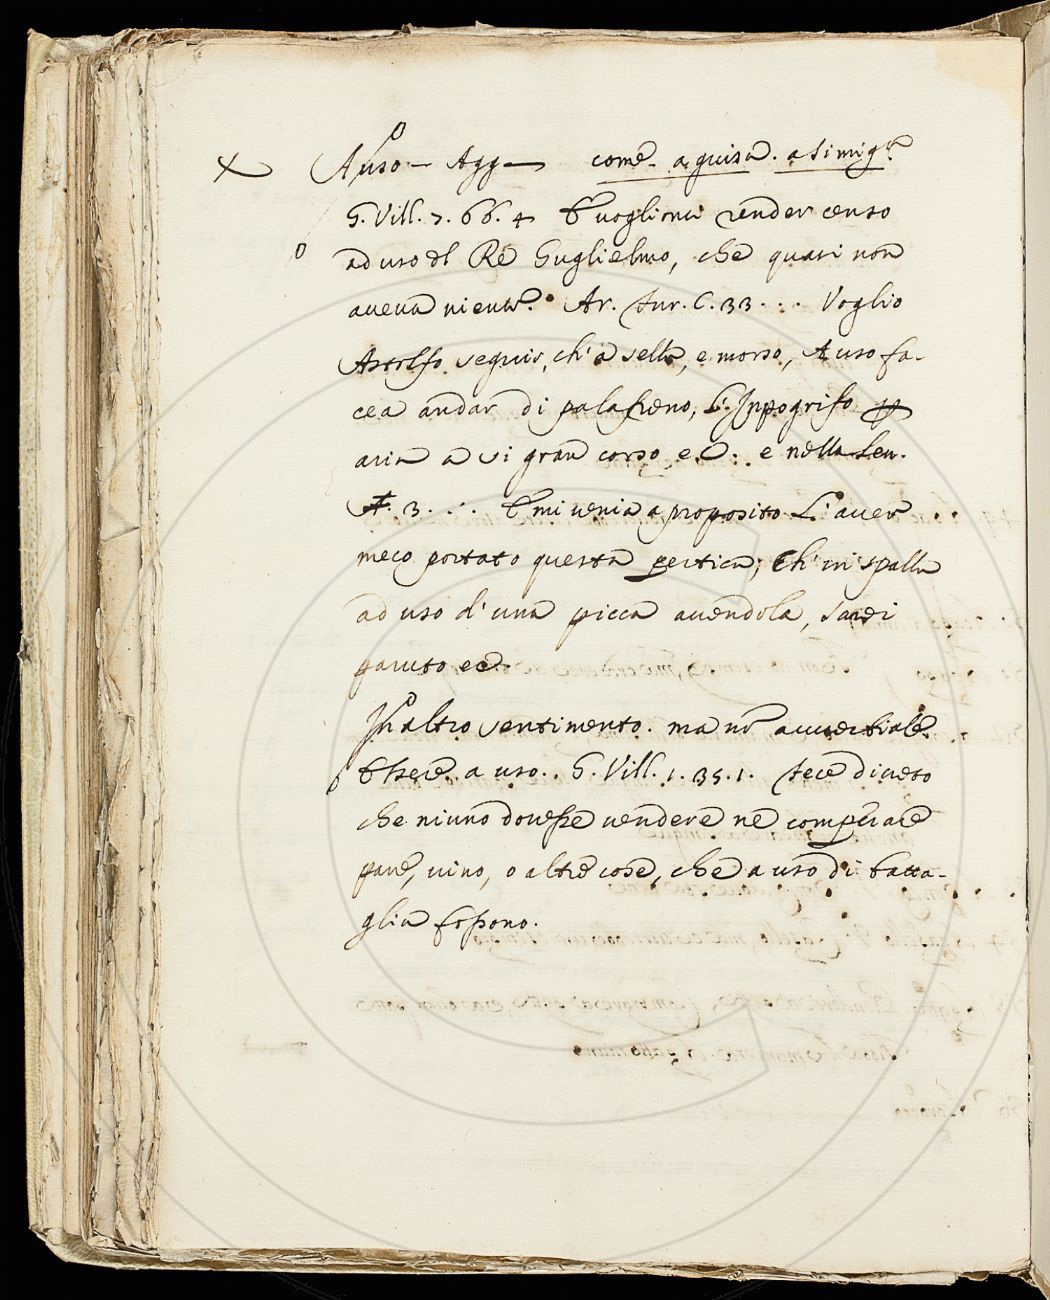 A uso — Agg — come. a guisa. a simigl.
G. Vill. 7. 66. 4 E voglionci render censo
ad uso dl Re Guglielmo, che quasi non
aveva niente. Ar. Fur. C. 33 . . . Voglio
Astolfo seguir, ch' a sella, e morso, A uso fa-
cea andar di palafreno, L'Ippogrifo p
aria a sì gran corso e C. e nella Len.
A. 3. . . . E mi venia a proposito L'aver
meco portato questa pertica; Ch' in spalla
ad uso d' una picca avendola, sarei
paruto ec.
In altro sentimento. ma non avverbiale.
Essere. a uso. . G. Vill. 1. 35. 1. fece divieto
che niuno dovesse vendere nè comperare
pane, vino, o altre cose, che a uso di batta-
glia fossono.